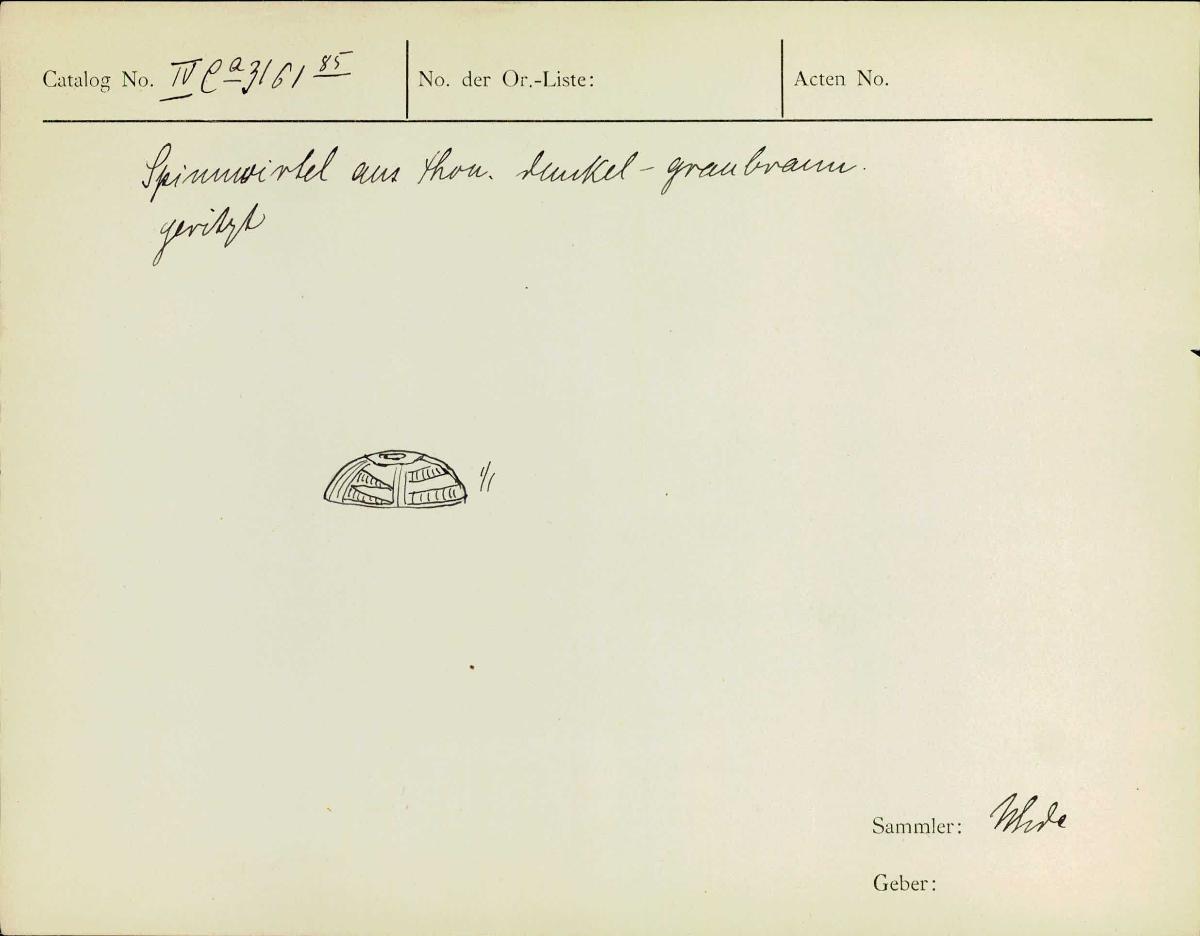 Catalog No. IV Ca 3161 85
No. der Or.-Liste:
Acten No.
Spinnwirtel aus Thon. dunkel-graubraun.
geritzt
1/1
Sammler: Uhde
Geber: